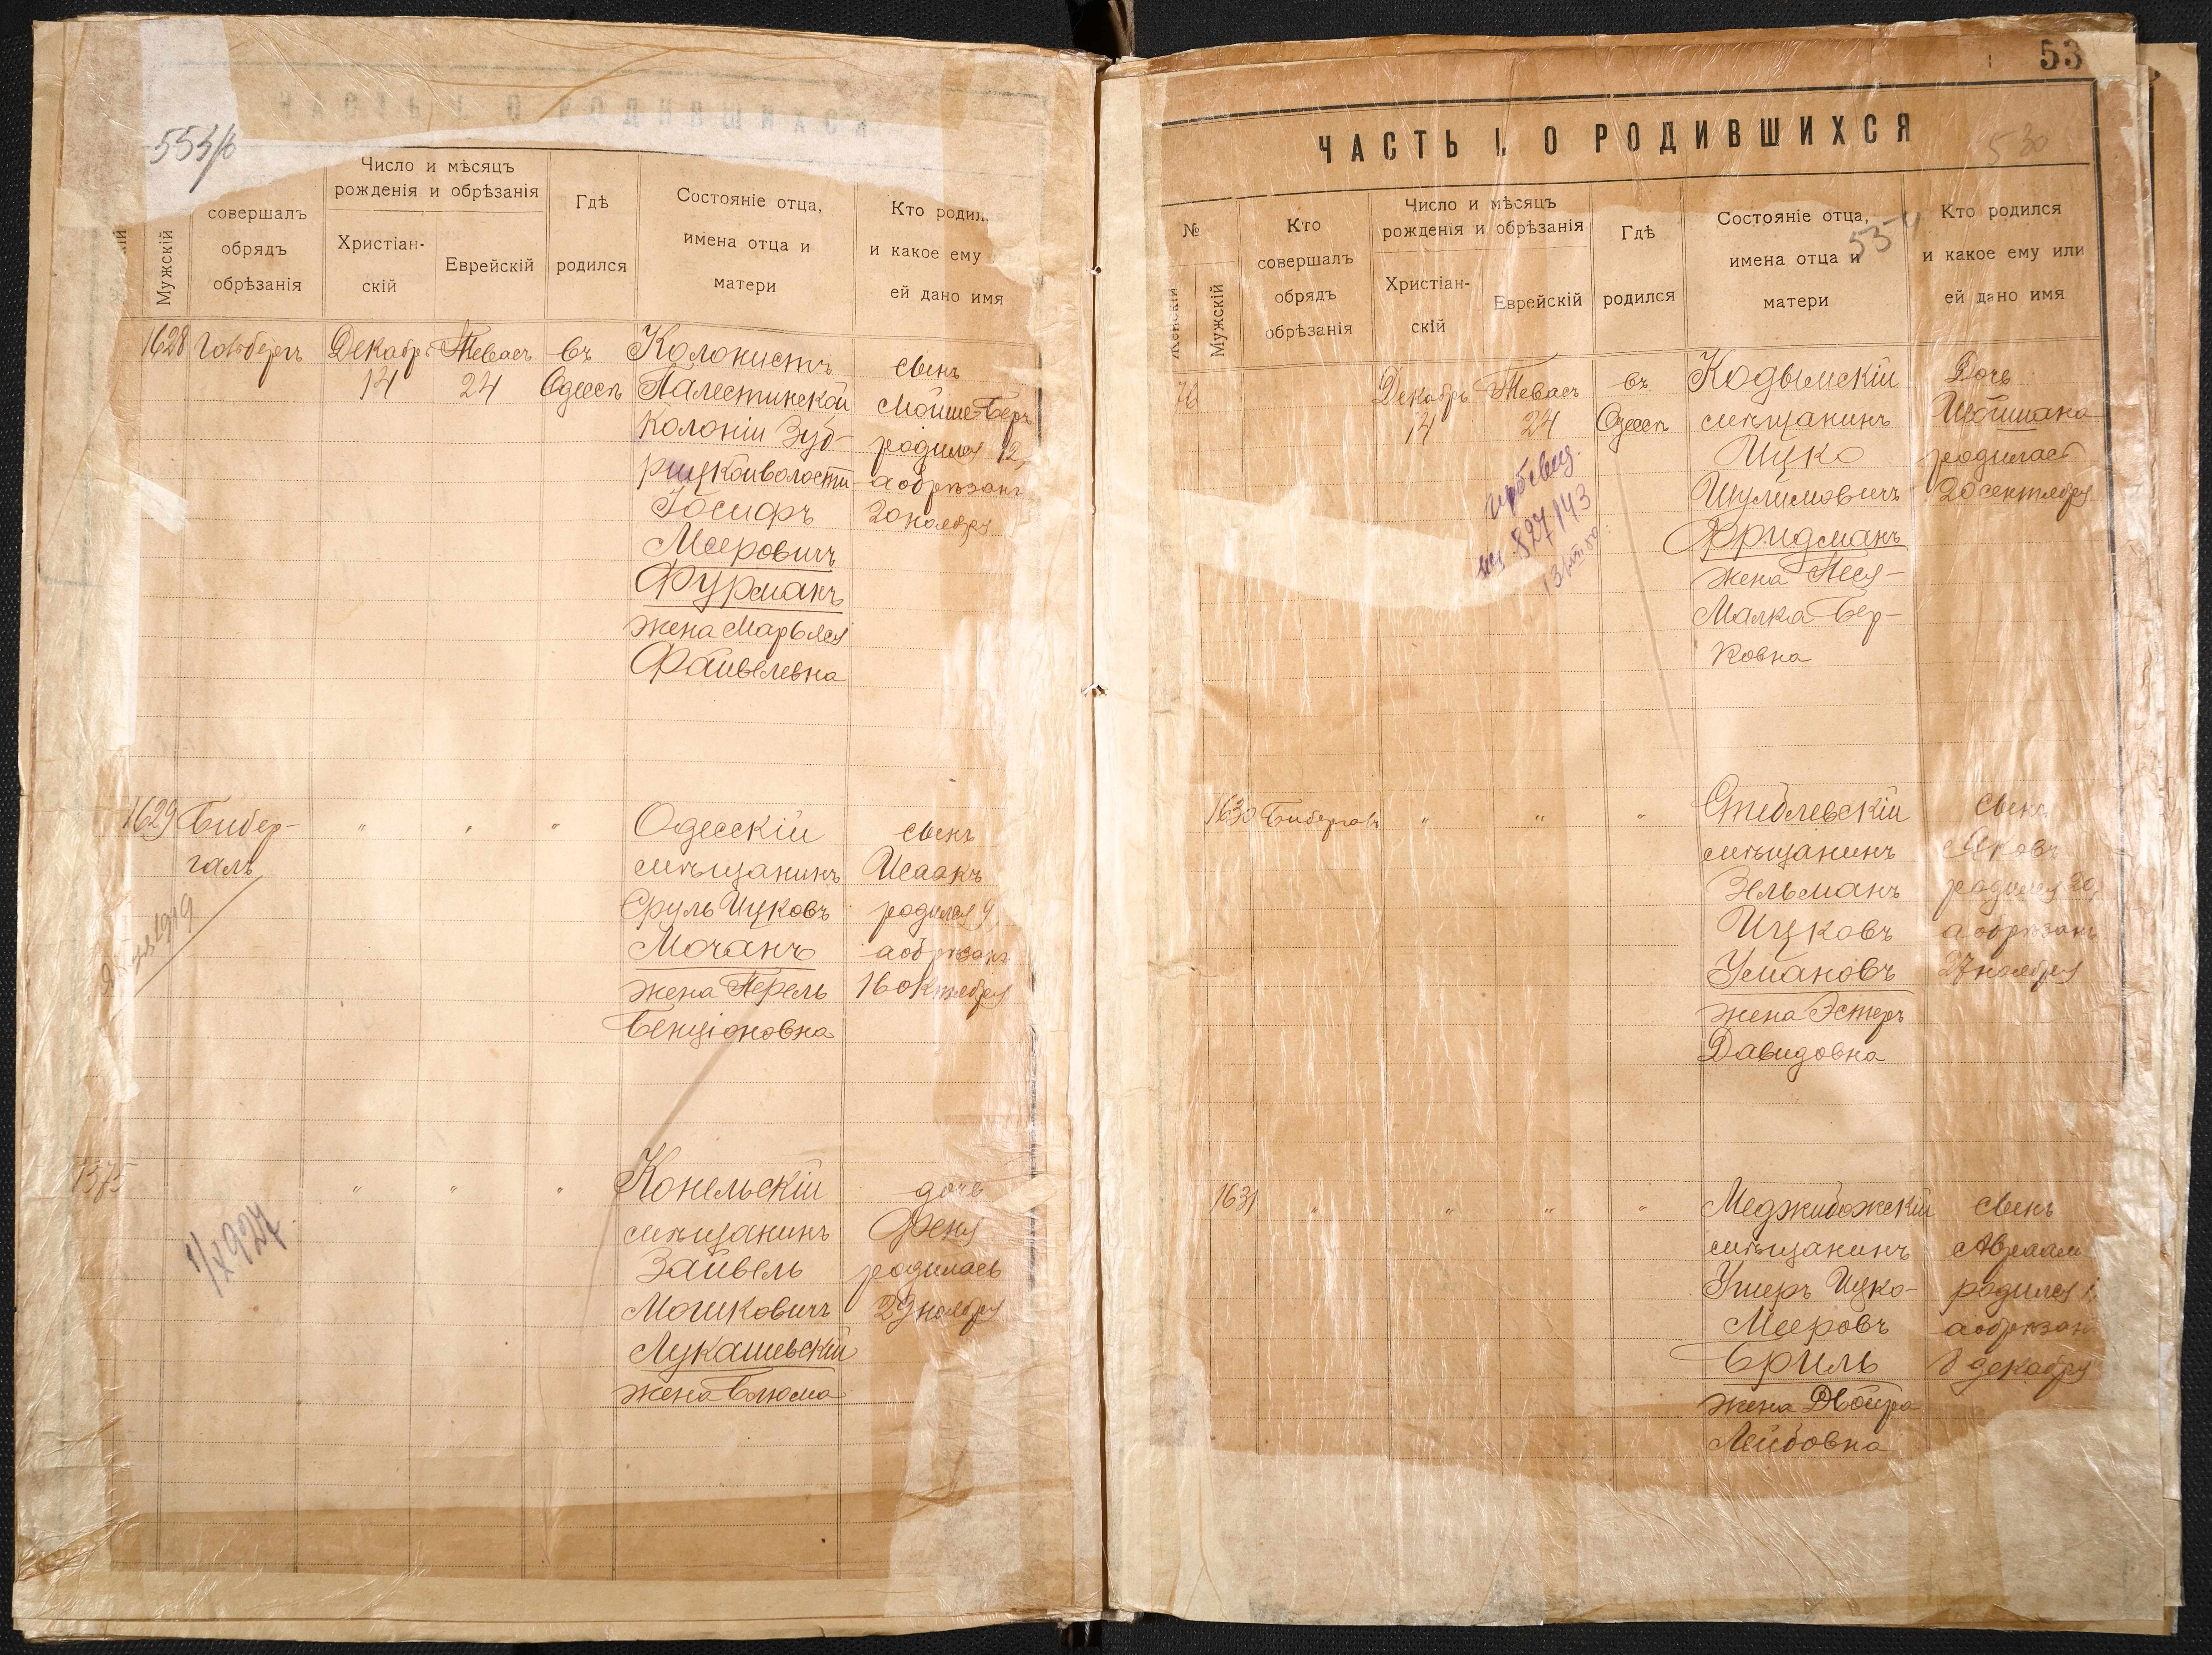 ЧАСТЬ I. О РОДИВШИХСЯ
Мужскій
совершалъ
обрядъ
обрѣзанія
Число и мѣсяцъ
рожденія и обрѣзанія
Христіан-
скій
Еврейскій
Гдѣ
родился
Состояніе отца,
имена отца и
матери
Кто родил
и какое ему
ей дано имя
1628
Декабрь
14
Теваеъ
24
въ
Одессѣ
Колонистъ
Палестинской
Колоніи Зуб-
рицкой волости
Іосифъ
Мееровичъ
Фурманъ
жена Марьяся
Файвелевна
сынъ
Мойше-Беръ
родился 12,
а обрѣзанъ
20 ноября
1629
Бибер-
галъ
"
"
"
Одесскій
мѣщанинъ
Сруль Ицковъ
Мочанъ
жена Перель
Бенціоновна
сынъ
Исаакъ
родился 9,
а обрѣзанъ
16 октября
1375
"
"
"
Конельскій
мѣщанинъ
Зайвель
Мошковичъ
Лукашевскій
жена Блюма
дочь
Феня
родилась
29 ноября
1/X 927
53
ЧАСТЬ I. О РОДИВШИХСЯ
530
№
Женскій
Мужскій
Кто
совершалъ
обрядъ
обрѣзанія
Число и мѣсяцъ
рожденія и обрѣзанія
Христіан-
скій
Еврейскій
Гдѣ
родился
Состояніе отца,
имена отца и
матери
Кто родился
и какое ему или
ей дано имя
76
Декабрь
14
Теваеъ
24
въ
Одессѣ
Кодымскій
мѣщанинъ
Ицко
Шулимовичъ
Фридманъ
жена Песя-
Малка Бер-
ковна
Дочь
родилась
20 сентября
827143
1630
Бибергалъ
"
"
"
Стеблевскій
мѣщанинъ
Эльманъ
Ицковъ
Умановъ
жена Эстеръ
Давидовна
сынъ
Яковъ
родился 20,
а обрѣзанъ
27 ноября
1631
"
"
"
"
Меджибожскій
мѣщанинъ
Ушеръ Ицко-
Мееровъ
Бриль
жена Двойра
Лейбовна
сынъ
Авраам
родился 1,
а обрѣзан
8 декабря